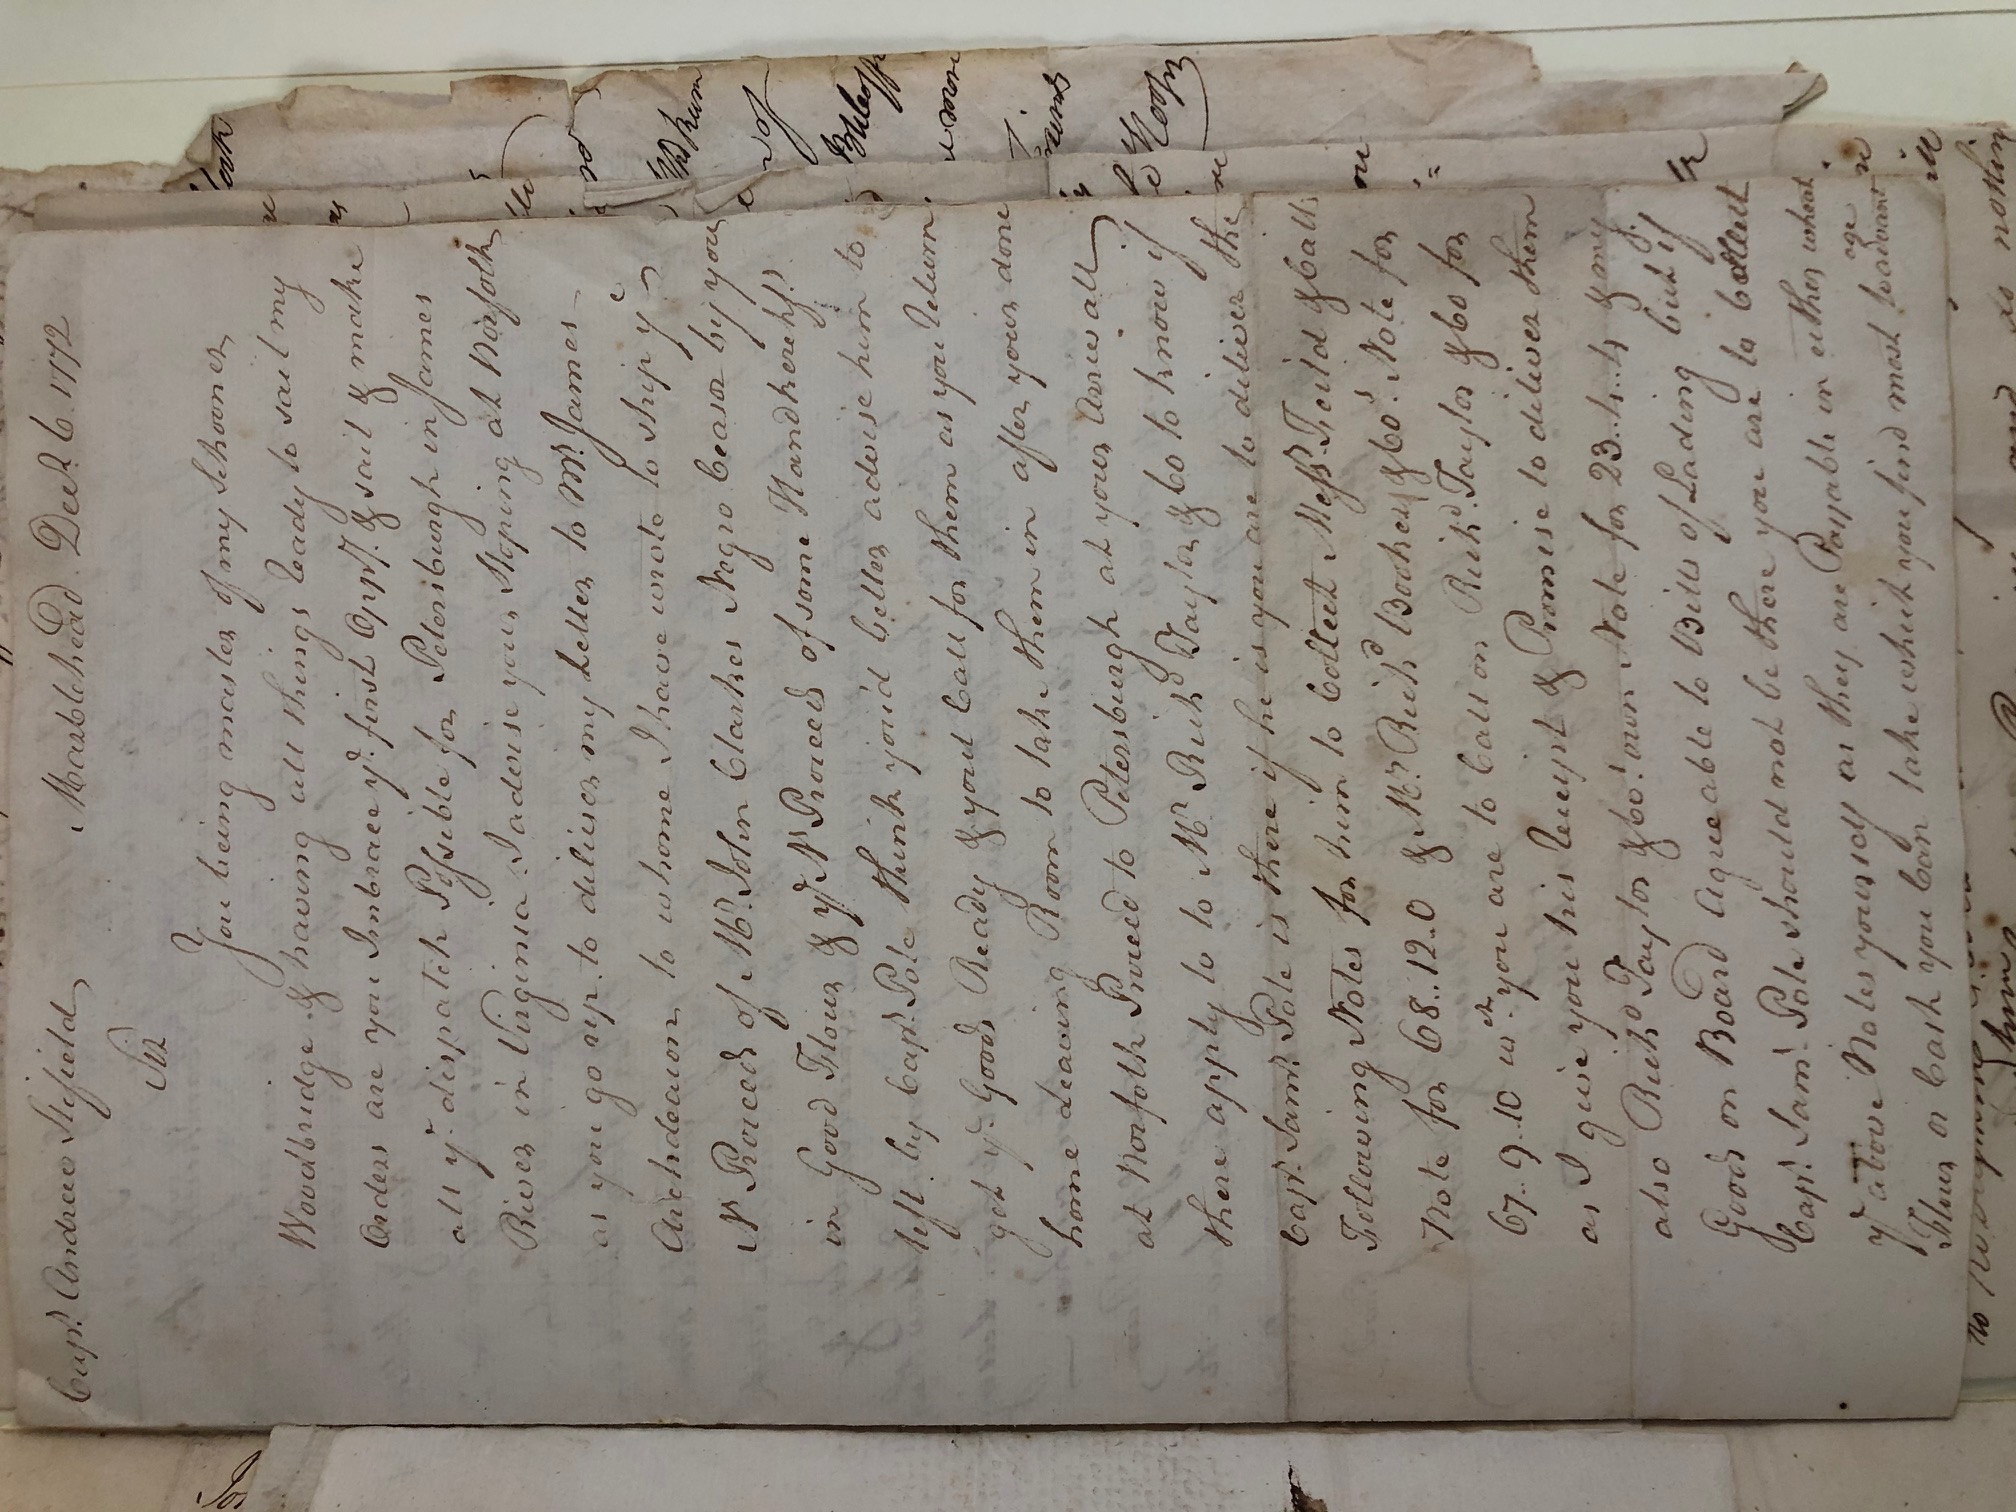 Capt. Andrew Fifield Marblehead. Decr. 6. 1772
Sir
You being master of my Schooner
Woodbridge & having all things ready to sail my
Orders are you Imbrace ye. first Oppy. & sail & make
all ye. dispatch Possible for Petersburgh in James
River in Virginia. I advise your Stoping at Norfolk
as you go up to deliver my Letter to Mr. James
Archdeacon to whome I have wrote to ship ye
Nt Proceeds of Mr. John Clarkes Negro Ceasar by you
in Good Flour & ye Nt Proceeds of some Handkerchfs.
left by Capt. Pote think you'd better advise him to
get ye. Goods Ready & you'l Call for them as you Return
home Leaving Room to take them in after your done
at Norfolk Proceed to Petersburgh at your Arrivall
there apply to to Mr Richd Taylor & Co to know if
Capt. Saml. Pote is there if he is you are to deliver the
Following Notes for him to Collect Messs. Field & Calls
Note for 68..12..0 & Mr. Richd Booker & Co. Note for
67..9..10 wch. you are to Call on Richd. Taylor & Co for
as I give you his Receipt & Promise to deliver them
also Richd Taylor & Co. own Note for 23..4..4 & my
Goods on Board agreeable to Bills of Lading but if
Capt. Saml. Pote should not be there you are to Collect
ye above Notes yourself as they are Payable in either wheat
Flour or Cash you Can take which you find most advant
age